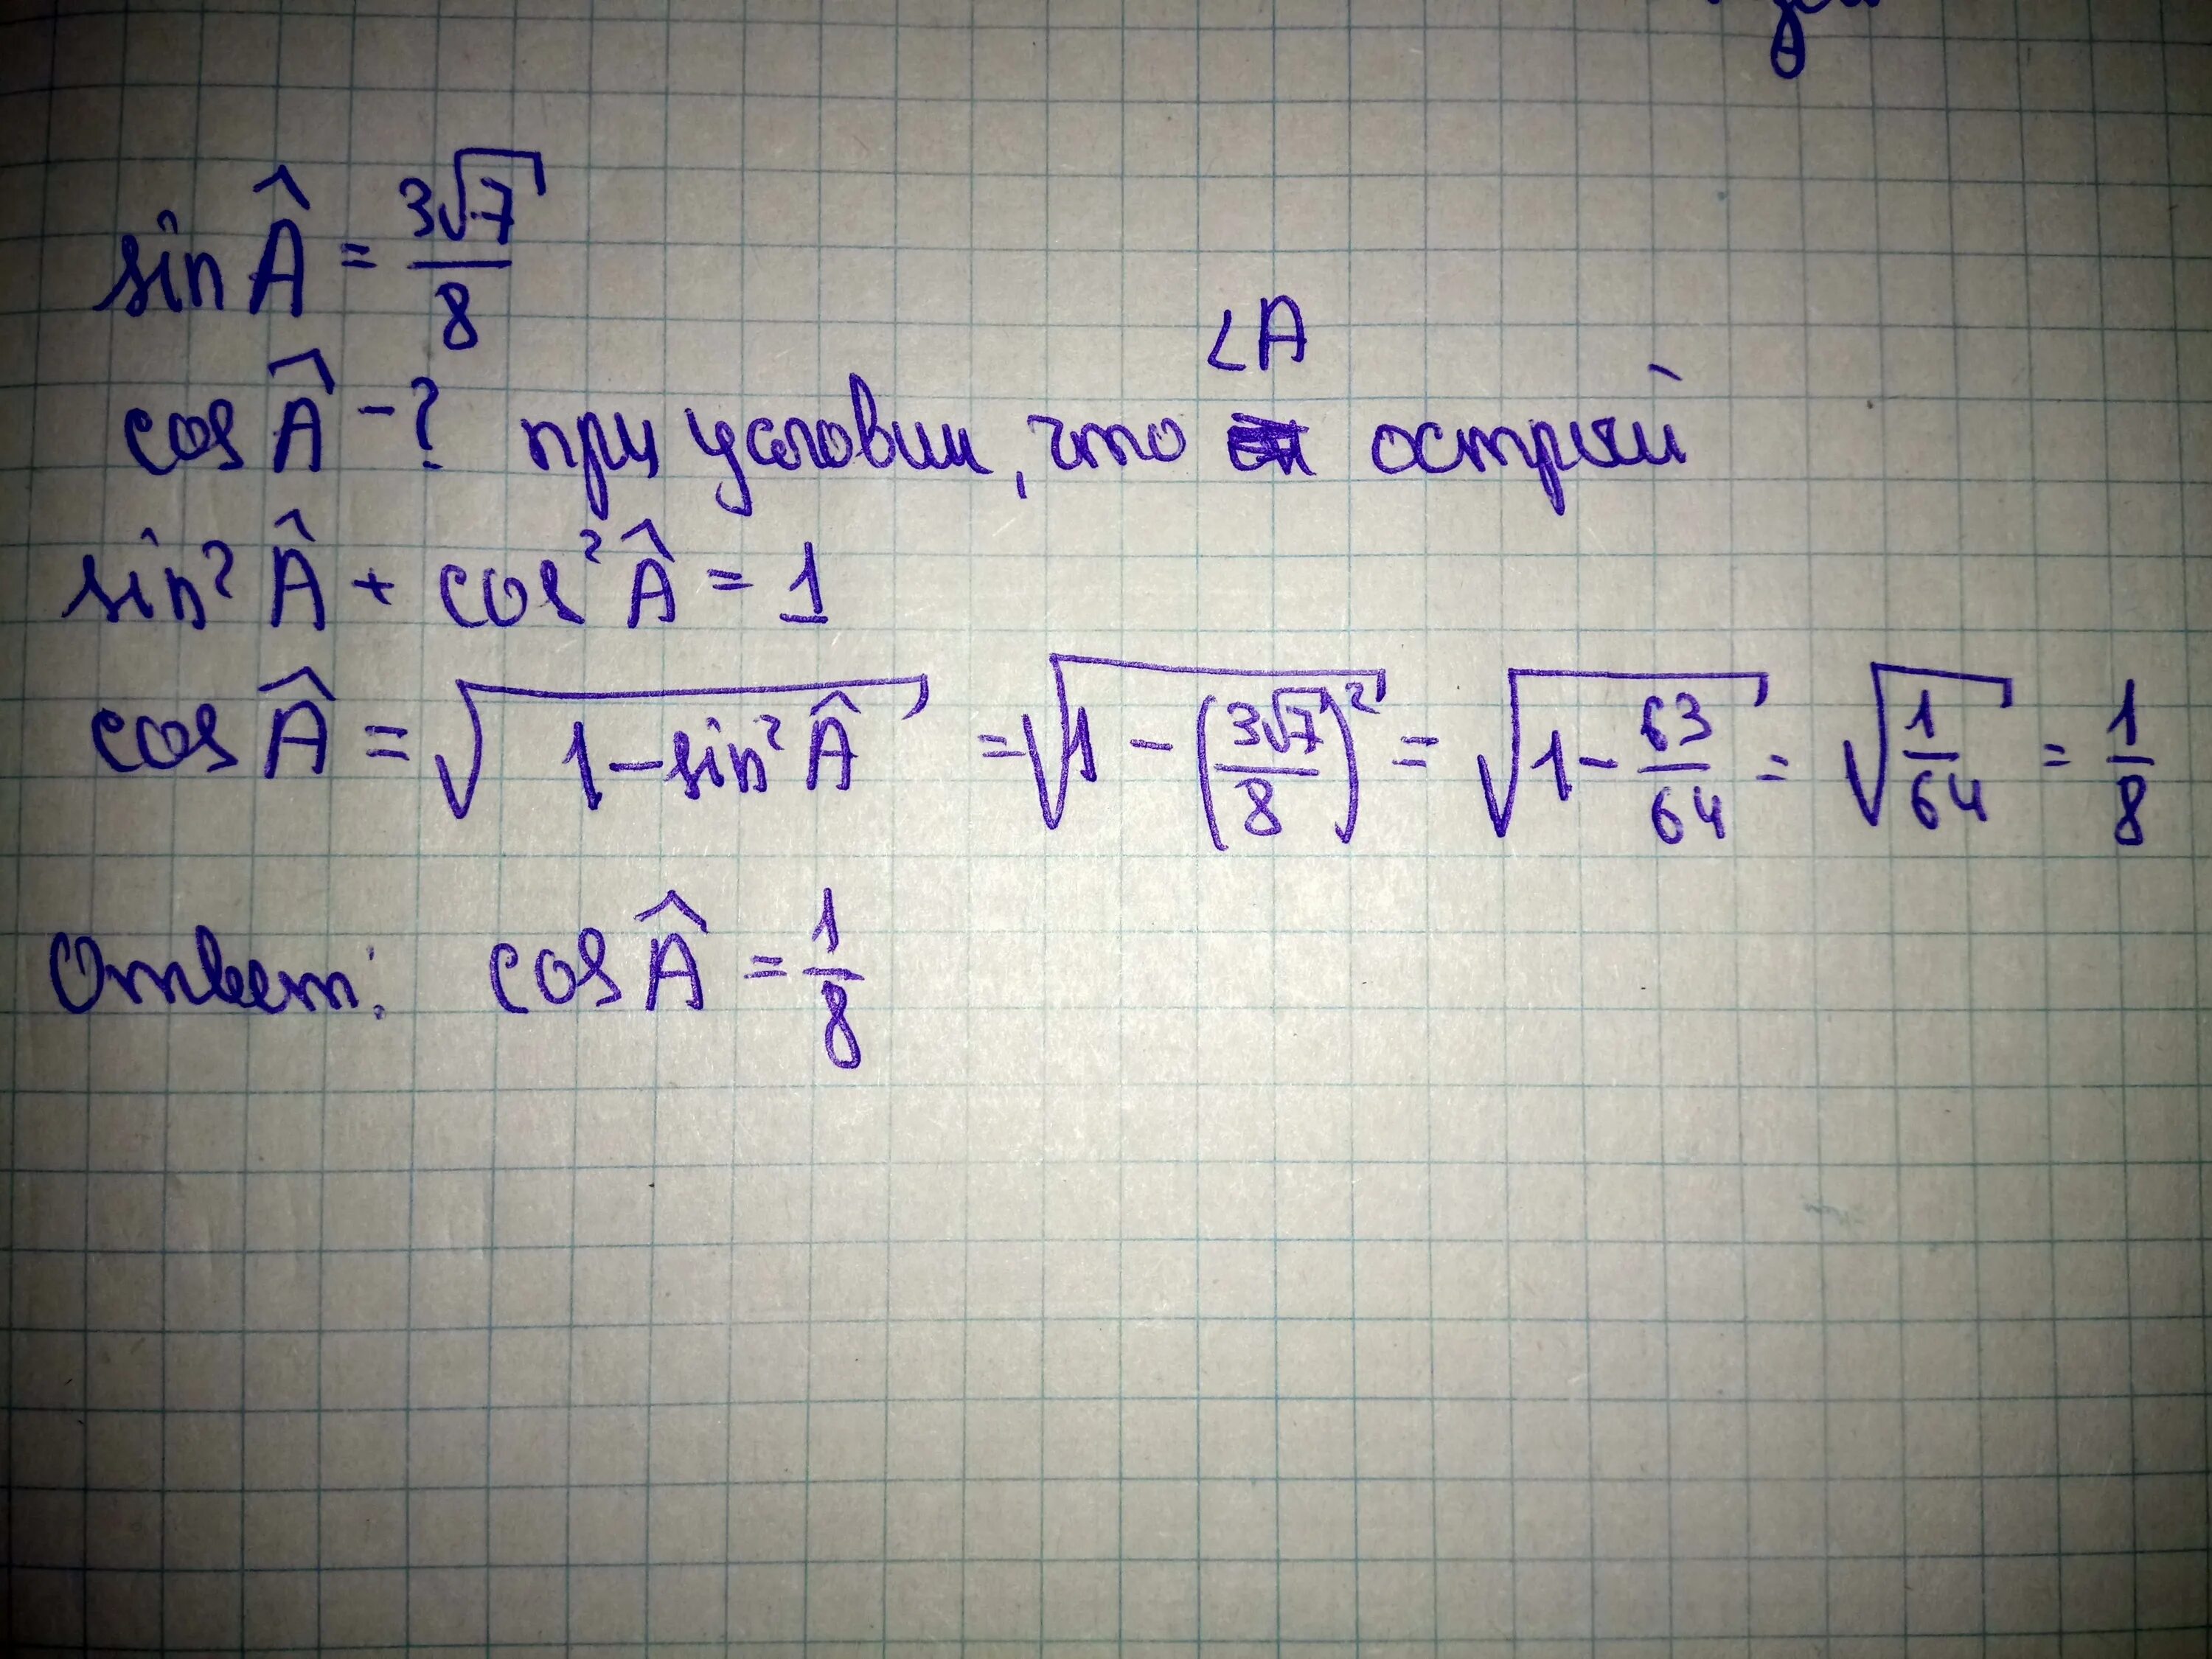 sin Â = 3√7/8
∠A
cos Â - ? при условии, что острый
sin² Â + cos² Â = 1
cos Â = √(1 - sin² Â) = √(1 - (3√7/8)²) = √(1 - 63/64) = √(1/64) = 1/8
Ответ: cos Â = 1/8